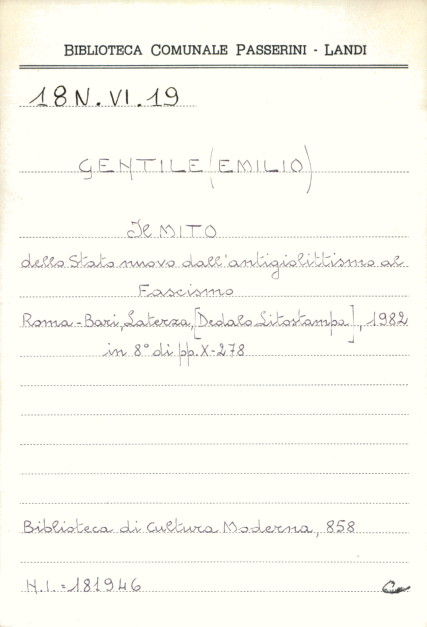 BIBLIOTECA COMUNALE PASSERINI - LANDI
18 N. VI. 19
GENTILE (EMILIO)
Il MITO
dello Stato nuovo dall'antigiolittismo al
Fascismo
Roma - Bari, Laterza, [Dedalo Litostampa], 1982
in 8° di pp. X-278
Biblioteca di Cultura Moderna, 858
N.I. = 181946